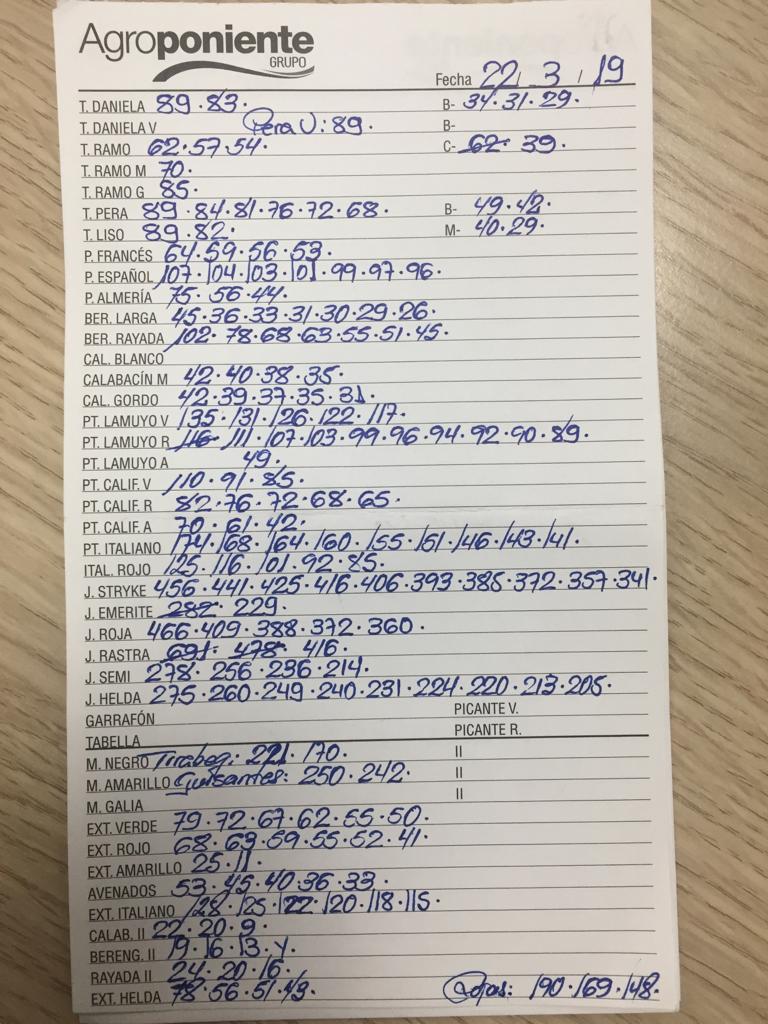 Agroponiente
GRUPO
Fecha 22 / 3 / 19
T. DANELA 89.83. B- 34.31.29.
T. DANIELA V Pera V: 89. B-
T. RAMO 62.57.54. C- 62. 39.
T. RAMO M 70.
T. RAMO G 85.
T. PERA 89.84.81.76.72.68. B- 49.42.
T. LISO 89.82. M- 40.29.
P. FRANCÉS 64.59.56.53.
P. ESPAÑOL 107.104.103.101.99.97.96.
P. ALMERÍA 75.56.44.
BER. LARGA 45.36.33.31.30.29.26.
BER. RAYADA 102.78.68.63.55.51.45.
CAL. BLANCO
CALABACÍN M 42.40.38.35.
CAL. GORDO 42.39.37.35.31.
PT. LAMUYO V 135.131.126.122.117.
PT. LAMUYO R 116. 111.107.103.99.96.94.92.90.89.
PT. LAMUYO A 49.
PT. CALIF. V 110.91.85.
PT. CALIF. R 82.76.72.68.65.
PT. CALIF. A 70.61.42.
PT. ITALIANO 174.168.164.160.155.151.146.143.141.
ITAL. ROJO 125.116.101.92.85.
J. STRYKE 456.441.425.416.406.393.385.372.357.341.
J. EMERITE 282. 229.
J. ROJA 466.409.388.372.360.
J. RASTRA 691. 478. 416.
J. SEMI 278.256.236.214.
J. HELDA 275.260.249.240.231.224.220.213.205.
GARRAFÓN PICANTE V.
TABELLA PICANTE R.
M. NEGRO Tirabeq: 221.170. II
M. AMARILLO Guisantes: 250.242. II
M. GALIA II
EXT. VERDE 79.72.67.62.55.50.
EXT. ROJO 68.63.59.55.52.41.
EXT. AMARILLO 25.11.
AVENADOS 53.45.40.36.33.
EXT. ITALIANO 128.125.122.120.118.115.
CALAB. II 22.20.9.
BERENG. II 19.16.13.4.
RAYADA II 24.20.16.
EXT. HELDA 78.56.51.49. Rojas: 190.169.148.